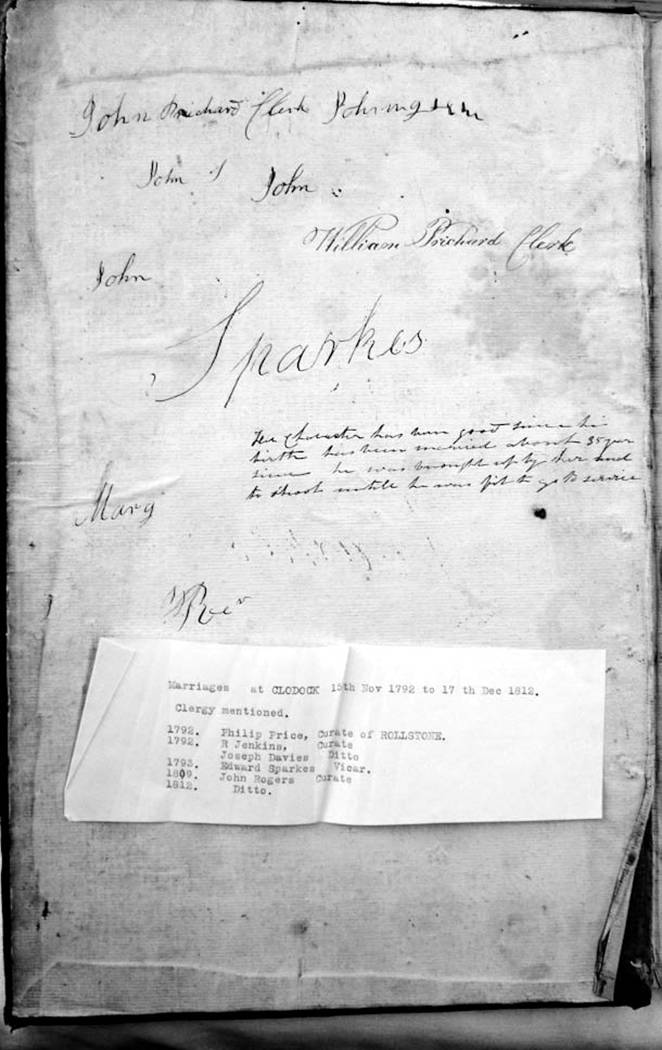 John Prichard Clerk
John John
William Prichard Clerk
John
Sparkes
character has been good since his
birth has been married about 35 year
since he was brought up by her and
to Shool untill he was fit to go to service
Mary
Marriages at CLODOCK 15th Nov 1792 to 17 th Dec 1812.
Clergy mentioned.
1792. Philip Price, Curate of ROLLSTONE.
1792. R Jenkins, Curate
Joseph Davies Ditto
1793. Edward Sparkes Vicar.
1809. John Rogers Curate
1812. Ditto.